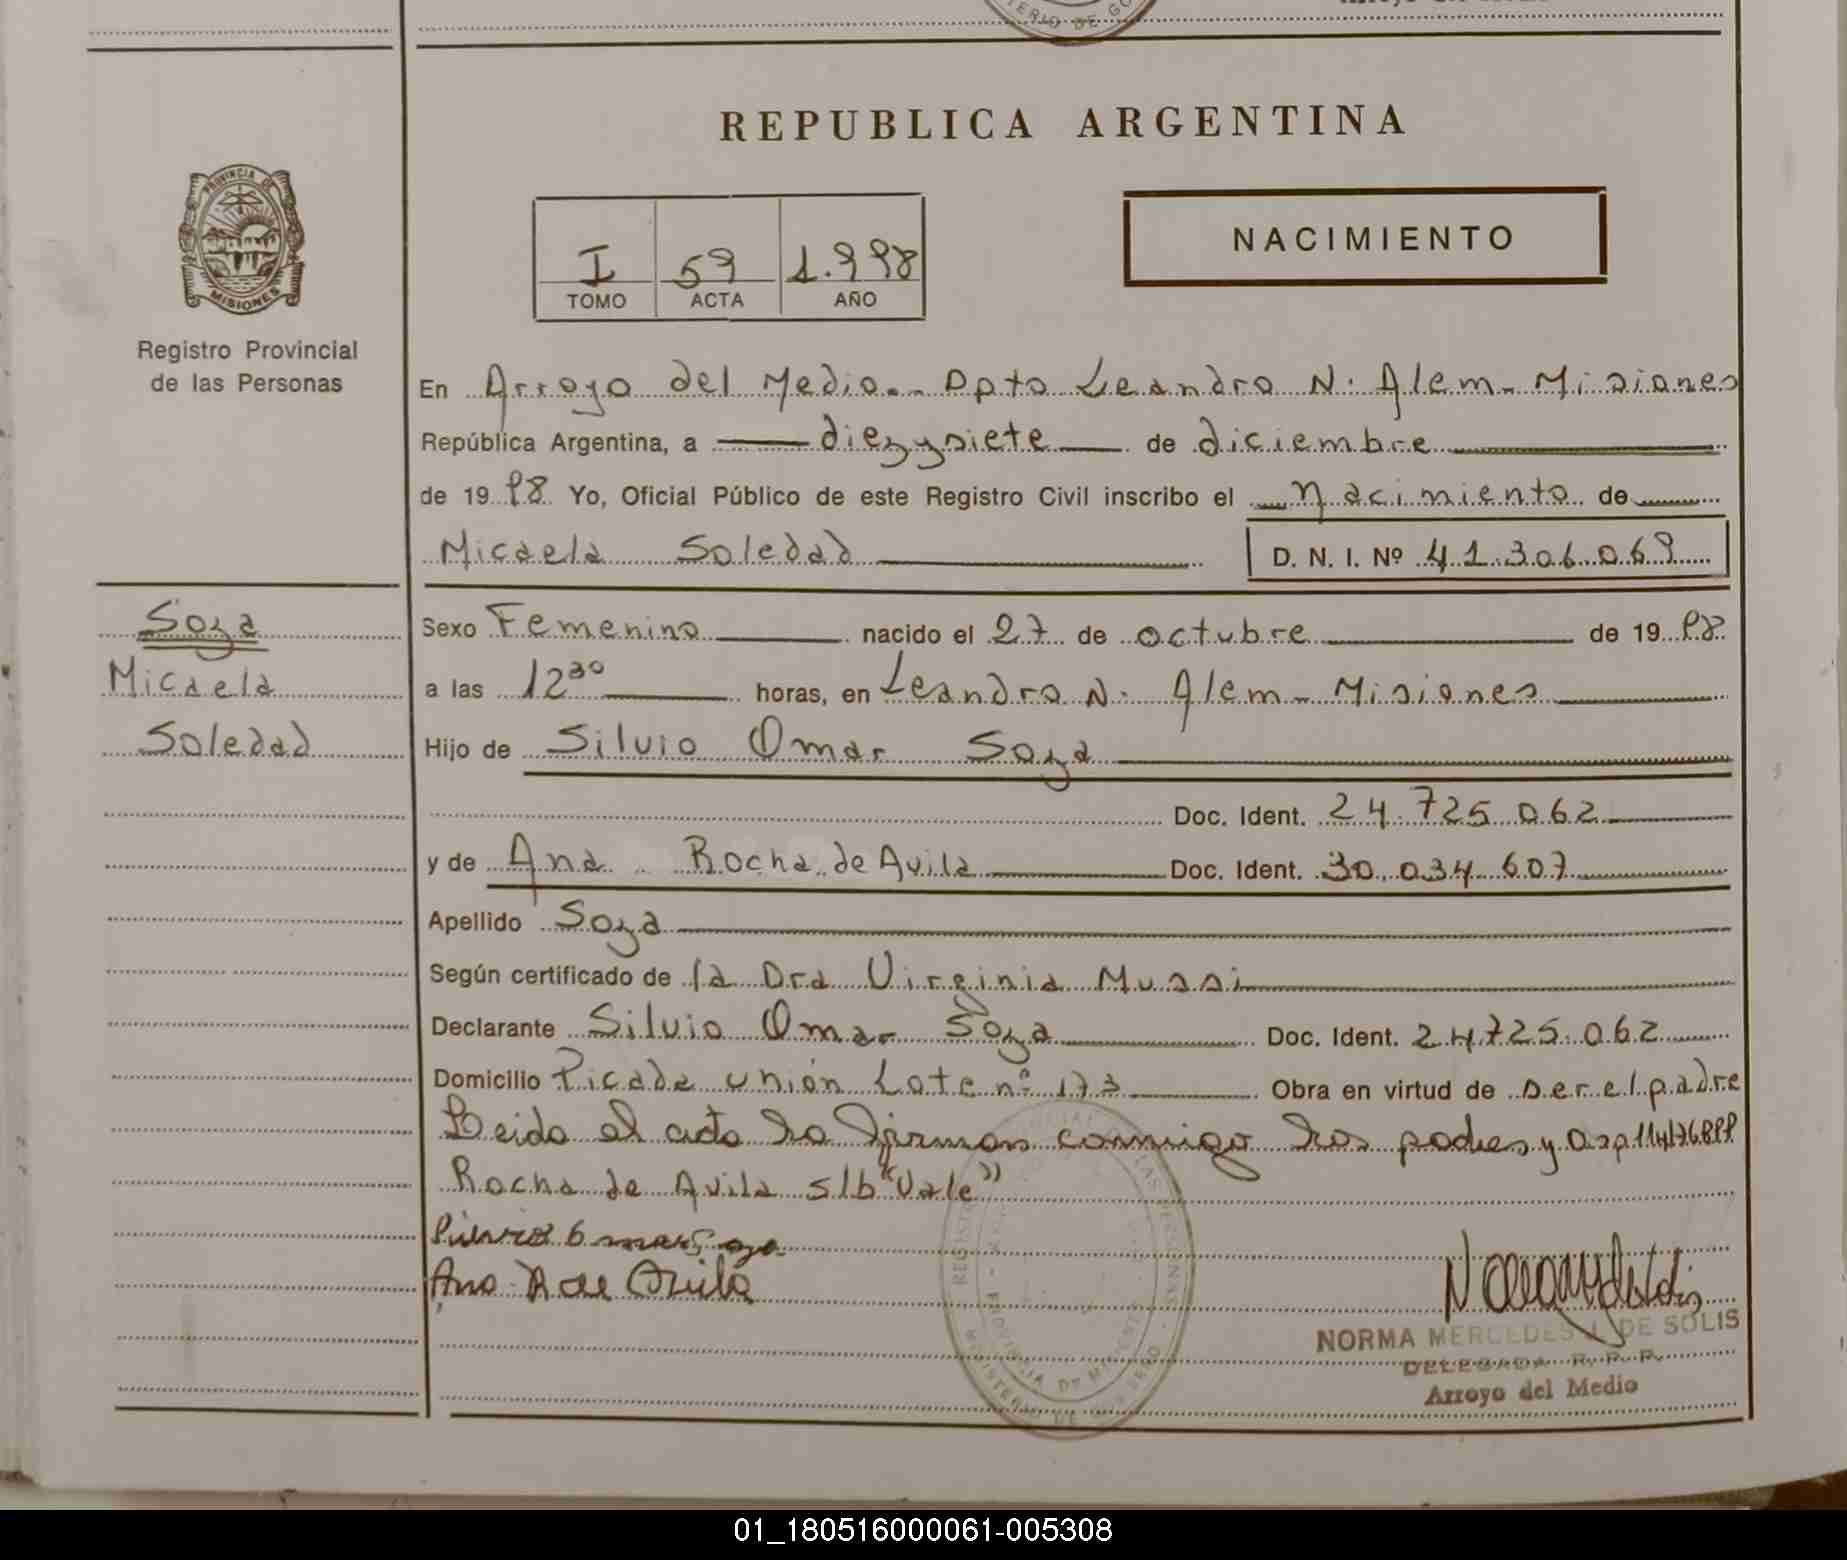 REPUBLICA ARGENTINA
PROVINCIA DE
MISIONES
Registro Provincial
de las Personas
I 59 1.998
TOMO ACTA AÑO
NACIMIENTO
En Arroyo del Medio.- Dpto Leandro N. Alem - Misiones
República Argentina, a diezysiete de diciembre
de 1998 Yo, Oficial Público de este Registro Civil inscribo el Nacimiento de
Micaela Soledad D. N. I. Nº 41.306.069
Soza
Micaela
Soledad
Sexo Femenino nacido el 27 de octubre de 1998
a las 12³⁰ horas, en Leandro N. Alem - Misiones
Hijo de Silvio Omar Soza
Doc. Ident. 24.725.062
y de Ana Rocha de Avila Doc. Ident. 30.034.607
Apellido Soza
Según certificado de la Dra Virginia Mussi
Declarante Silvio Omar Soza Doc. Ident. 24.725.062
Domicilio Picada unión Lote nº 173 Obra en virtud de ser el padre
Leido el acta la firman conmigo los padres y
Rocha de Avila s/b "Vale"
Ana R de Avila
NORMA MERCEDES J. DE SOLIS
DELEGADA R. P. P.
Arroyo del Medio
01_180516000061-005308